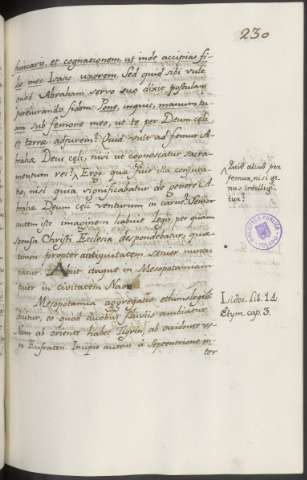 230
haneam, et cognationem, ut inde accipias fi-
lio meo Isaac uxorem. Sed quid sibi vult
quod Abraham servo suo dixit postulans
procurandi fidem: Pone, inquit, manum tu-
am sub femore meo, ut te per Deum cæli
et terræ adjurem? Quid vult ad femur A-
brahæ Deus cæli, nisi ut cognoscatur sacra-
mentum rei? Ergo quæ fuit illa coniura-
tio, nisi quia significabatur de genere A-
brahæ Deum cæli venturum in carne. Senior
autem iste imaginem habuit legis per quam
sponsa Christi Ecclesia despondebatur, quæ
tamen propter antiquitatem senior nuncu-
patur. Abiit itaque in Mesopotamiam
iuxta in civitatem Nachor
Mesopotamia
butur, eo quod duobus fluviis ambiatur.
Nam ab oriente habet Tigrim, ab occidente ve-
ro Eufraten. Incipit autem a septentrione in-
ter
Quid aliud per
femur, nisi ge-
nus intelligi-
tur?
Isidor. lib. 14
Etym. cap. 3.